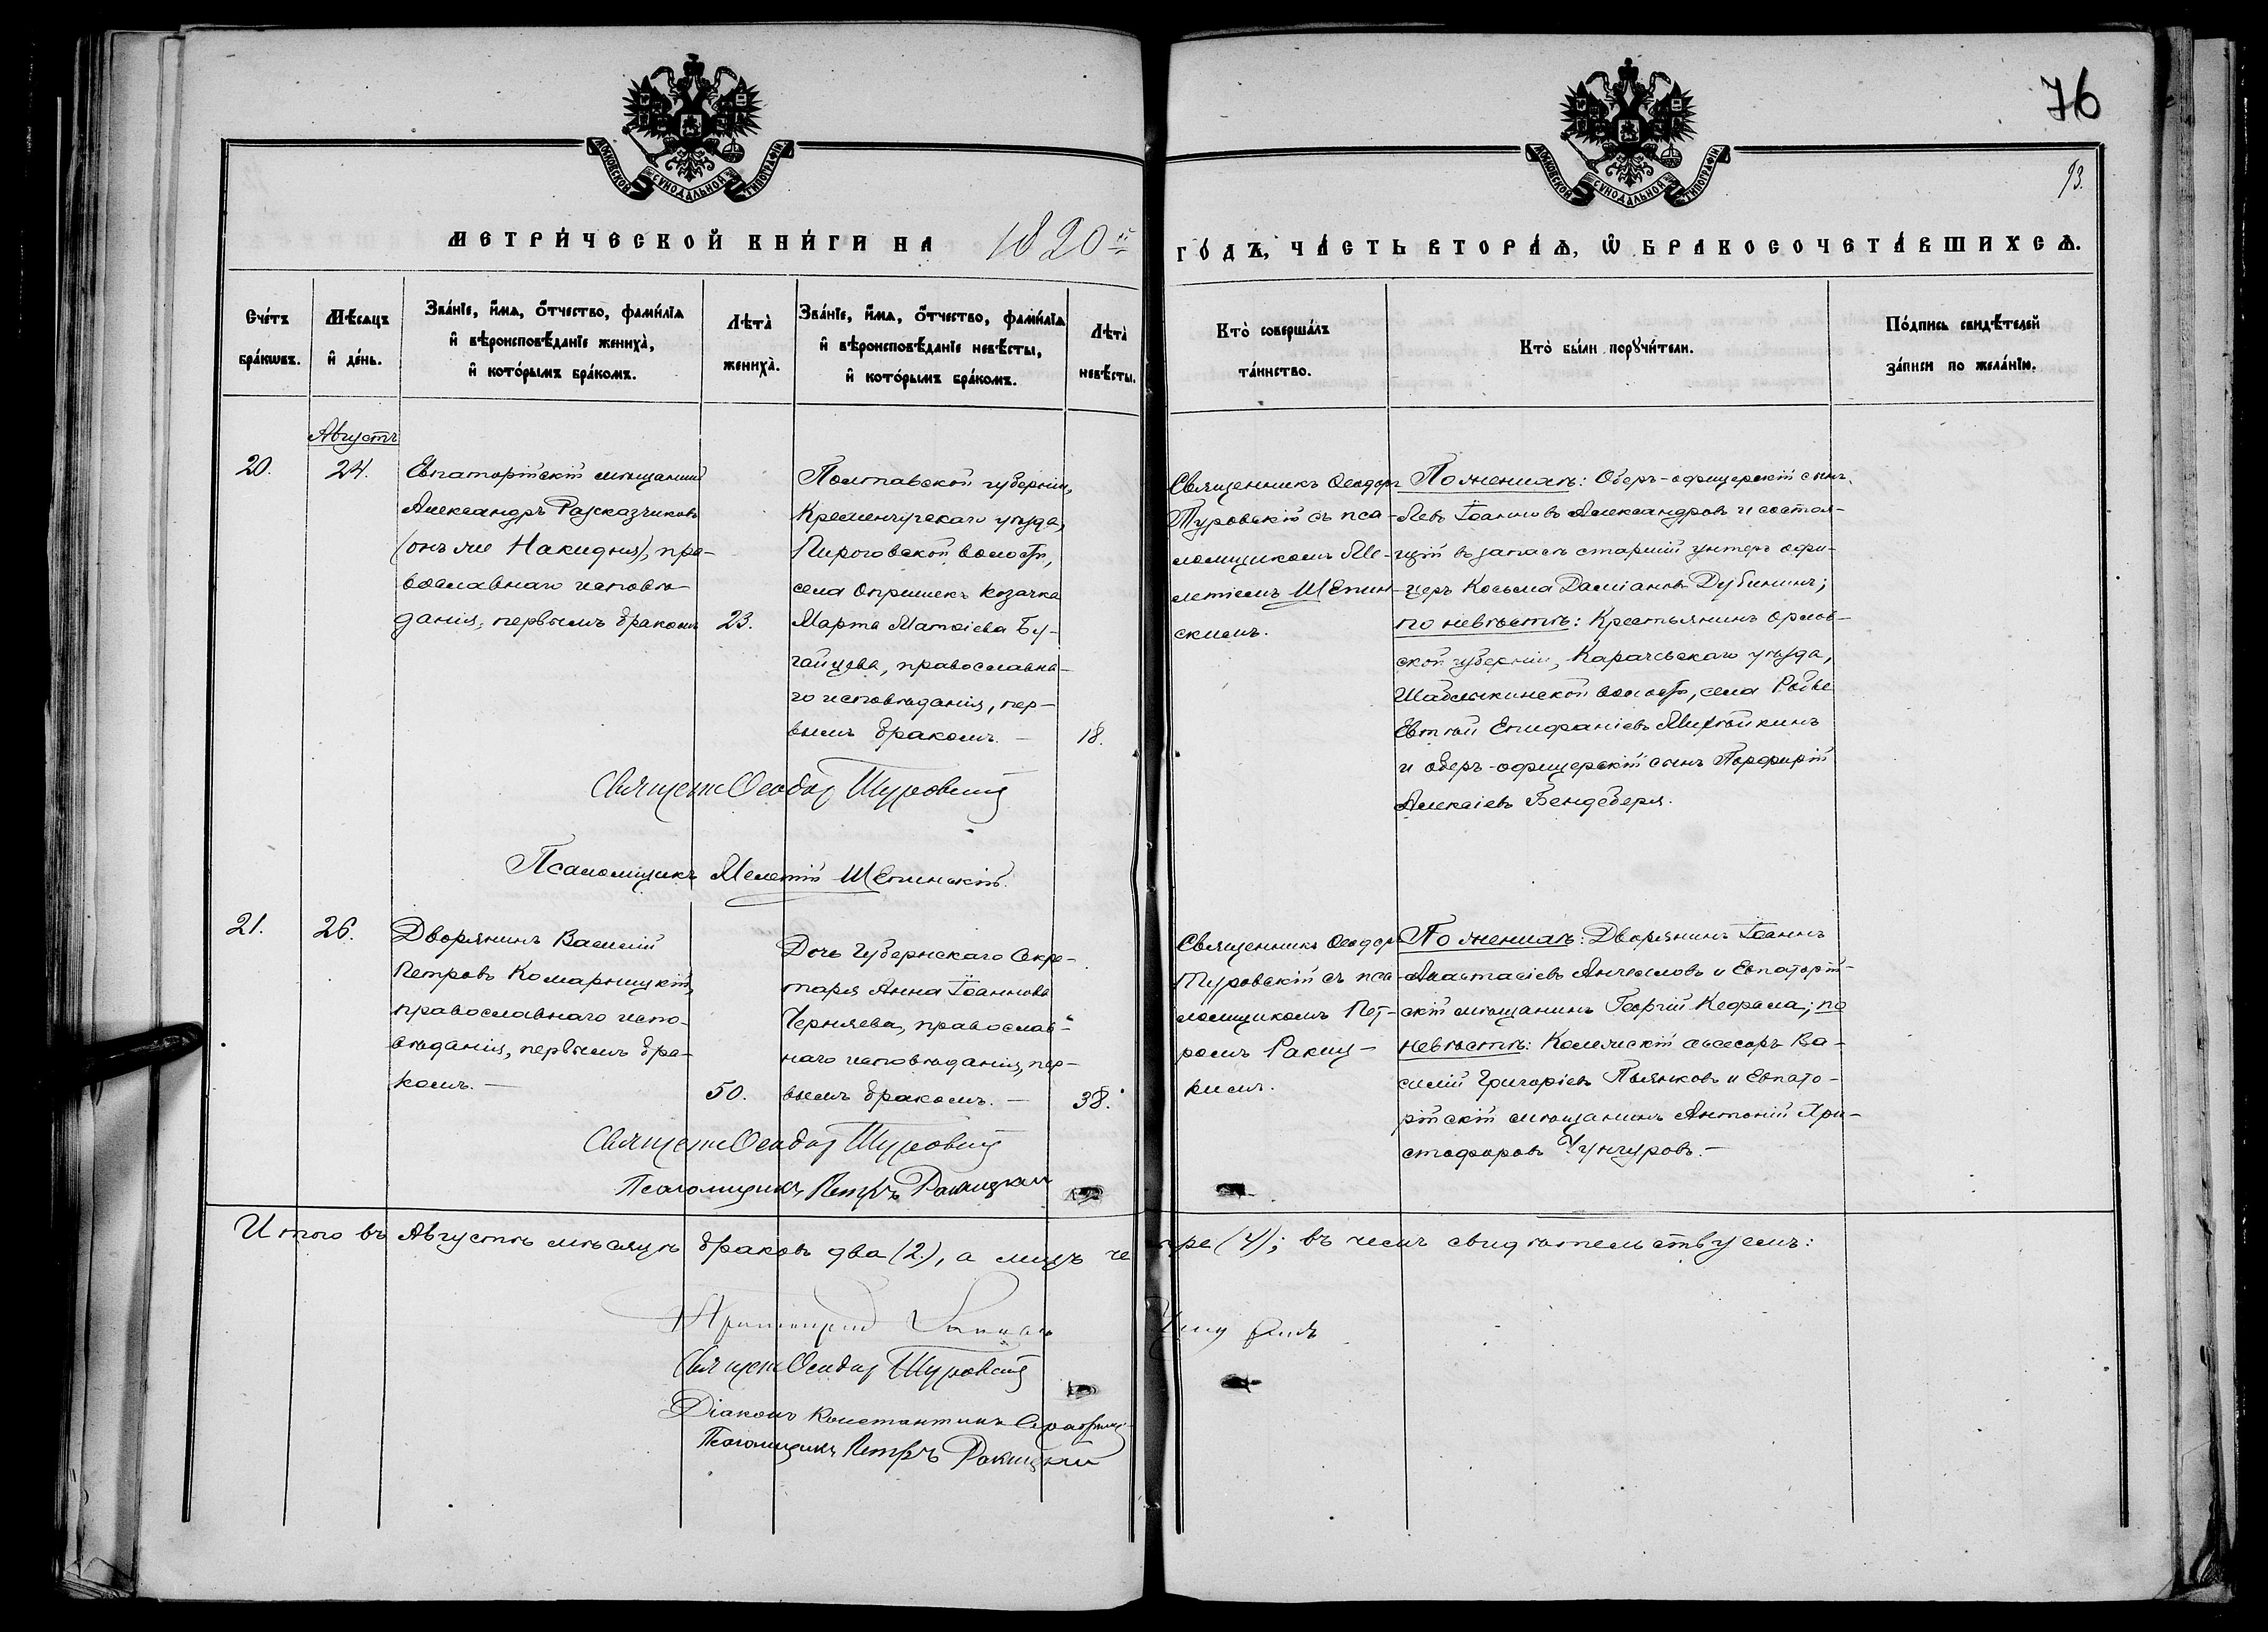 76
93.
МОСКОВСКОЙ СѴНОДАЛЬНОЙ ТИПОГРАФІИ
МОСКОВСКОЙ СѴНОДАЛЬНОЙ ТИПОГРАФІИ
МЕТРИ́ЧЕСКОЙ КНИ́ГИ НА
ГО́ДЪ, ЧА́СТЬ ВТОРА́Ѧ, Ѿ БРАКОСОЧЕТА́ВШИХСѦ.
Сче́тъ
бра́кѡвъ.
Мѣ́сѧцъ
и҆ де́нь.
Зва́нїе, и҆́мѧ, ѻ҆́тчество, фами́лїѧ
и҆ вѣроисповѣ́данїе жениха̀,
и҆ кото́рымъ бра́комъ.
Лѣта̀
жениха̀.
Зва́нїе, и҆́мѧ, ѻ҆́тчество, фами́лїѧ
и҆ вѣроисповѣ́данїе невѣ́сты,
и҆ кото́рымъ бра́комъ.
Лѣта̀
невѣ́сты.
Кто̀ соверша́лъ
та́инство.
Кто̀ бы́ли порꙋчи́тели.
По́дпись свидѣ́телей
за́писи по жела́нїю.
Августъ
20.
24.
Евпаторійскій мѣщанинъ
Александръ Разсказчиковъ
(онъ же Накидня), пра-
вославнаго исповѣ-
данія, первымъ бракомъ
23.
Полтавской губерніи,
Кременчугскаго уѣзда,
Пироговской волости,
села Опришекъ козачка
Марта Матѳіева Бу-
гайцева, православна-
го исповѣданія, пер-
вымъ бракомъ. —
18.
Священникъ Ѳеодоръ
Туровскій съ пса-
ломщикомъ Ме-
летіемъ Щепин-
скимъ.
По женихѣ: Оберъ-офицерскій сынъ
Левъ Іоанновъ Александровъ и состоя-
щій въ запасѣ старшій унтеръ офи-
церъ Косьма Даміановъ Дубининъ;
по невѣстѣ: Крестьянинъ Орлов-
ской губерніи, Карачевскаго уѣзда,
Шаблыкинской волости, села Робье
Евтей Епифаніевъ
и оберъ-офицерскій сынъ Порфирій
Алексіевъ Бендеберя.
Священникъ Ѳеодоръ Туровскій
Псаломщикъ Мелетій Щепинскій.
21.
26.
Дворянинъ Василій
Петровъ Комарницкій,
православнаго испо-
вѣданія, первымъ бра-
комъ. —
50.
Дочь Губернскаго Секре-
таря Анна Іоаннова
Черняева, православ-
наго исповѣданія, пер-
вымъ бракомъ. —
38.
Священникъ Ѳеодоръ
Туровскій съ пса-
ломщикомъ Пет-
ромъ Ракиц-
кимъ.
По женихѣ: Дворянинъ Іоаннъ
Анастасіевъ Ангеловъ и Евпаторій-
скій мѣщанинъ Георгій Кефала; по
невѣстѣ: Коллежскій ассесоръ Ва-
силій Григоріевъ Пьянковъ и Евпато-
рійскій мѣщанинъ Антоній Хри-
стофоровъ Чунгуровъ. —
Священникъ Ѳеодоръ Туровскій
Псаломщикъ Петръ Ракицкій
Итого въ Августѣ мѣсяцѣ браковъ два (2), а лицъ че тыре (4); въ чемъ свидѣтельствуемъ:
Протоіерей
Священникъ Ѳеодоръ Туровскій
Діаконъ Константинъ
Псаломщикъ Петръ Ракицкій